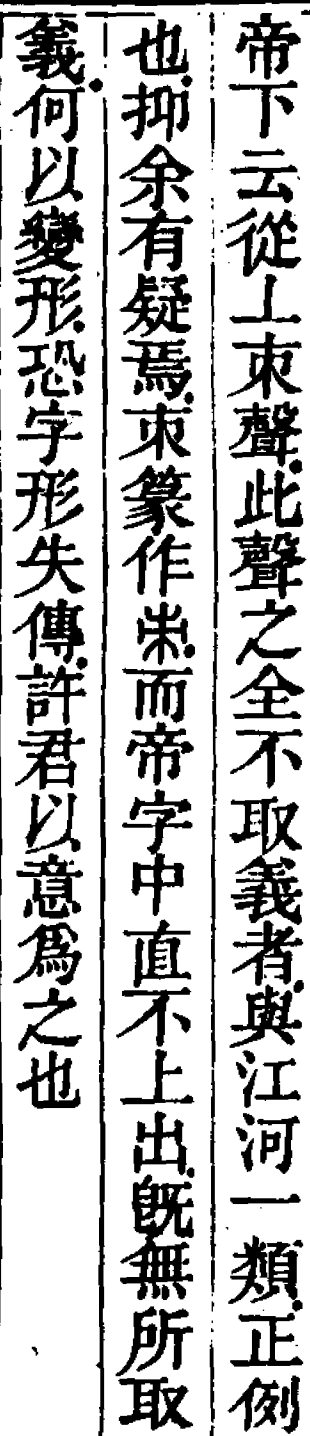 帝下云從丄朿聲此聲之全不取義者與江河一類正例
也抑余有疑焉朿篆作朿而帝字中直不上出旣無所取
義何以變形恐字形失傳許君以意爲之也